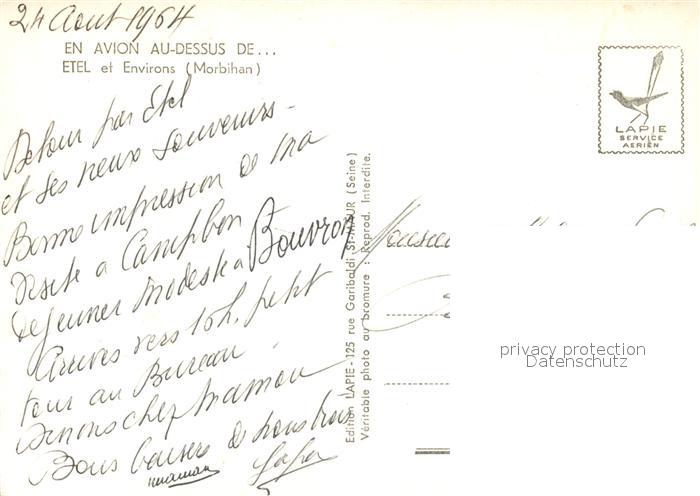 24 Aout 1964
EN AVION AU-DESSUS DE...
ETEL et Environs (Morbihan)
Retour par Etel
et ses vieux souvenirs -
Bonne impression de ma
visite à Campbon
Dejeuner modeste à Bouvron
Arrivés vers 16h, petit
tour au Bureau.
Dinons chez maman
Bons baisers de nous trois
maman
Edition LAPIE - 125 rue Garibaldi St-MAUR (Seine)
Véritable photo au bromure : Reprod. Interdite.
LAPIE
SERVICE
AERIEN
privacy protection
Datenschutz